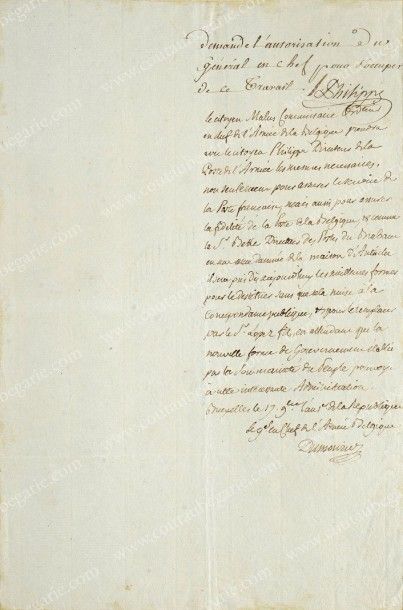 demande l'autorisation du
général en chef pour s'occuper
de ce travail. Philippe
le citoyen Malus Commissaire
en chef de l'Armée de la Belgique prendra
avec le citoyen Philippe Directeur de la
Poste de l'Armée les mesures nécessaires,
non seulement pour assurer le service de
la Poste françoise, mais aussi pour assurer
la fidélité de la Poste de la Belgique, & comme
le Sr. Directeur des Postes du Brabant
est une de la maison d'Autriche
il sera pris dès aujourd'hui les meilleures formes
pour le destituer sans que cela nuise à la
Correspondance publique, & pour le remplacer
par le Sr. fils, en attendant que la
nouvelle forme de Gouvernement établie
par la Souveraineté du Peuple pourvoye
à cette intéressante Administration
Bruxelles le 17 9bre l'an 1er de la République
le Gal en Chef de l'Armée Belgique
Dumouriez
www.coutaubegarie.com